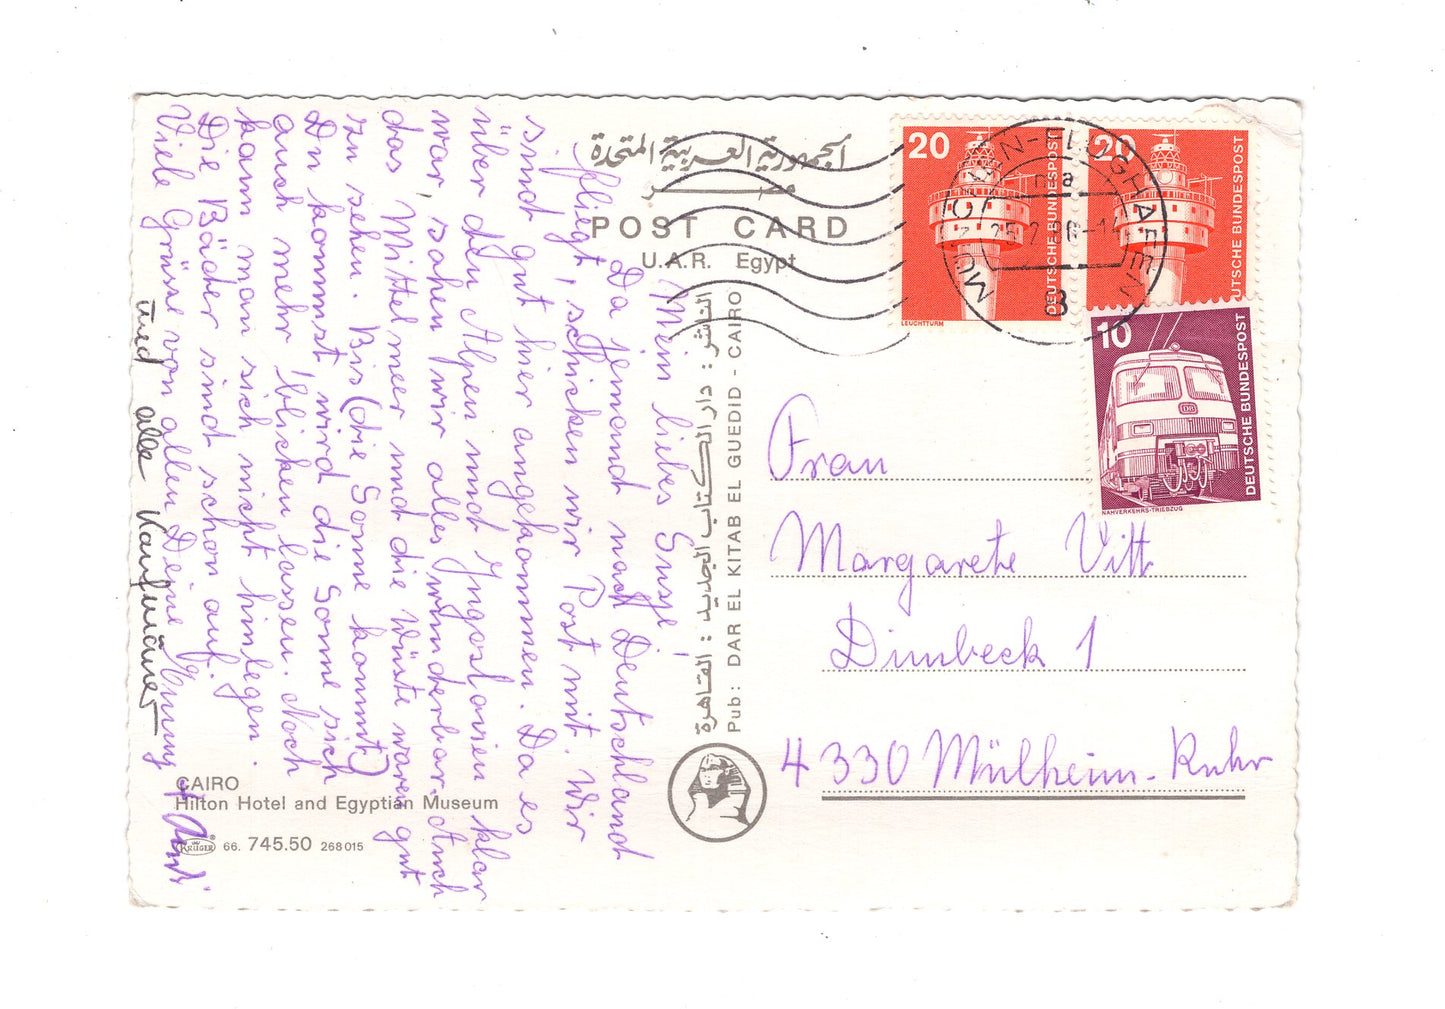 الجمهورية العربية المتحدة
مصر
POST CARD
U.A.R. Egypt
الناشر : دار الكتاب الجديد : القاهرة
Pub: DAR EL KITAB EL GUEDID - CAIRO
Mein liebes Susje!
Da jemand nach Deutschland
fliegt, schicken wir Post mit. Wir
sind gut hier angekommen. Da es
über den Alpen und Jugoslavien klar
war, sahen wir alles wunderbar. Auch
das Mittelmeer und die Wüste waren gut
zu sehen. Bis (die Sonne kommt)
Du kommst, wird die Sonne sich
auch mehr blicken lassen. Noch
kann man sich nicht hinlegen.
Die Bäder sind schon auf.
Viele Grüsse von allen Deine
und alle Kaufmänner
CAIRO
Hilton Hotel and Egyptian Museum
KRÜGER 66. 745.50 268015
20
DEUTSCHE BUNDESPOST
LEUCHTTURM
20
DEUTSCHE BUNDESPOST
10
DEUTSCHE BUNDESPOST
DB
NAHVERKEHRS-TRIEBZUG
MÜNCHEN-FLUGHAFEN
Frau
Margarete Vitt
Dimbeck 1
4330 Mülheim-Ruhr